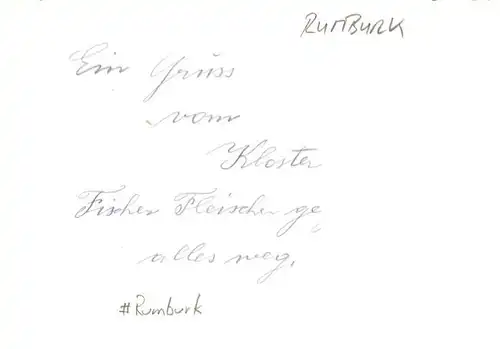 RUMBURK
Ein Gruss
vom
Kloster
Fischer Fleischer ge
alles weg.
#Rumburk